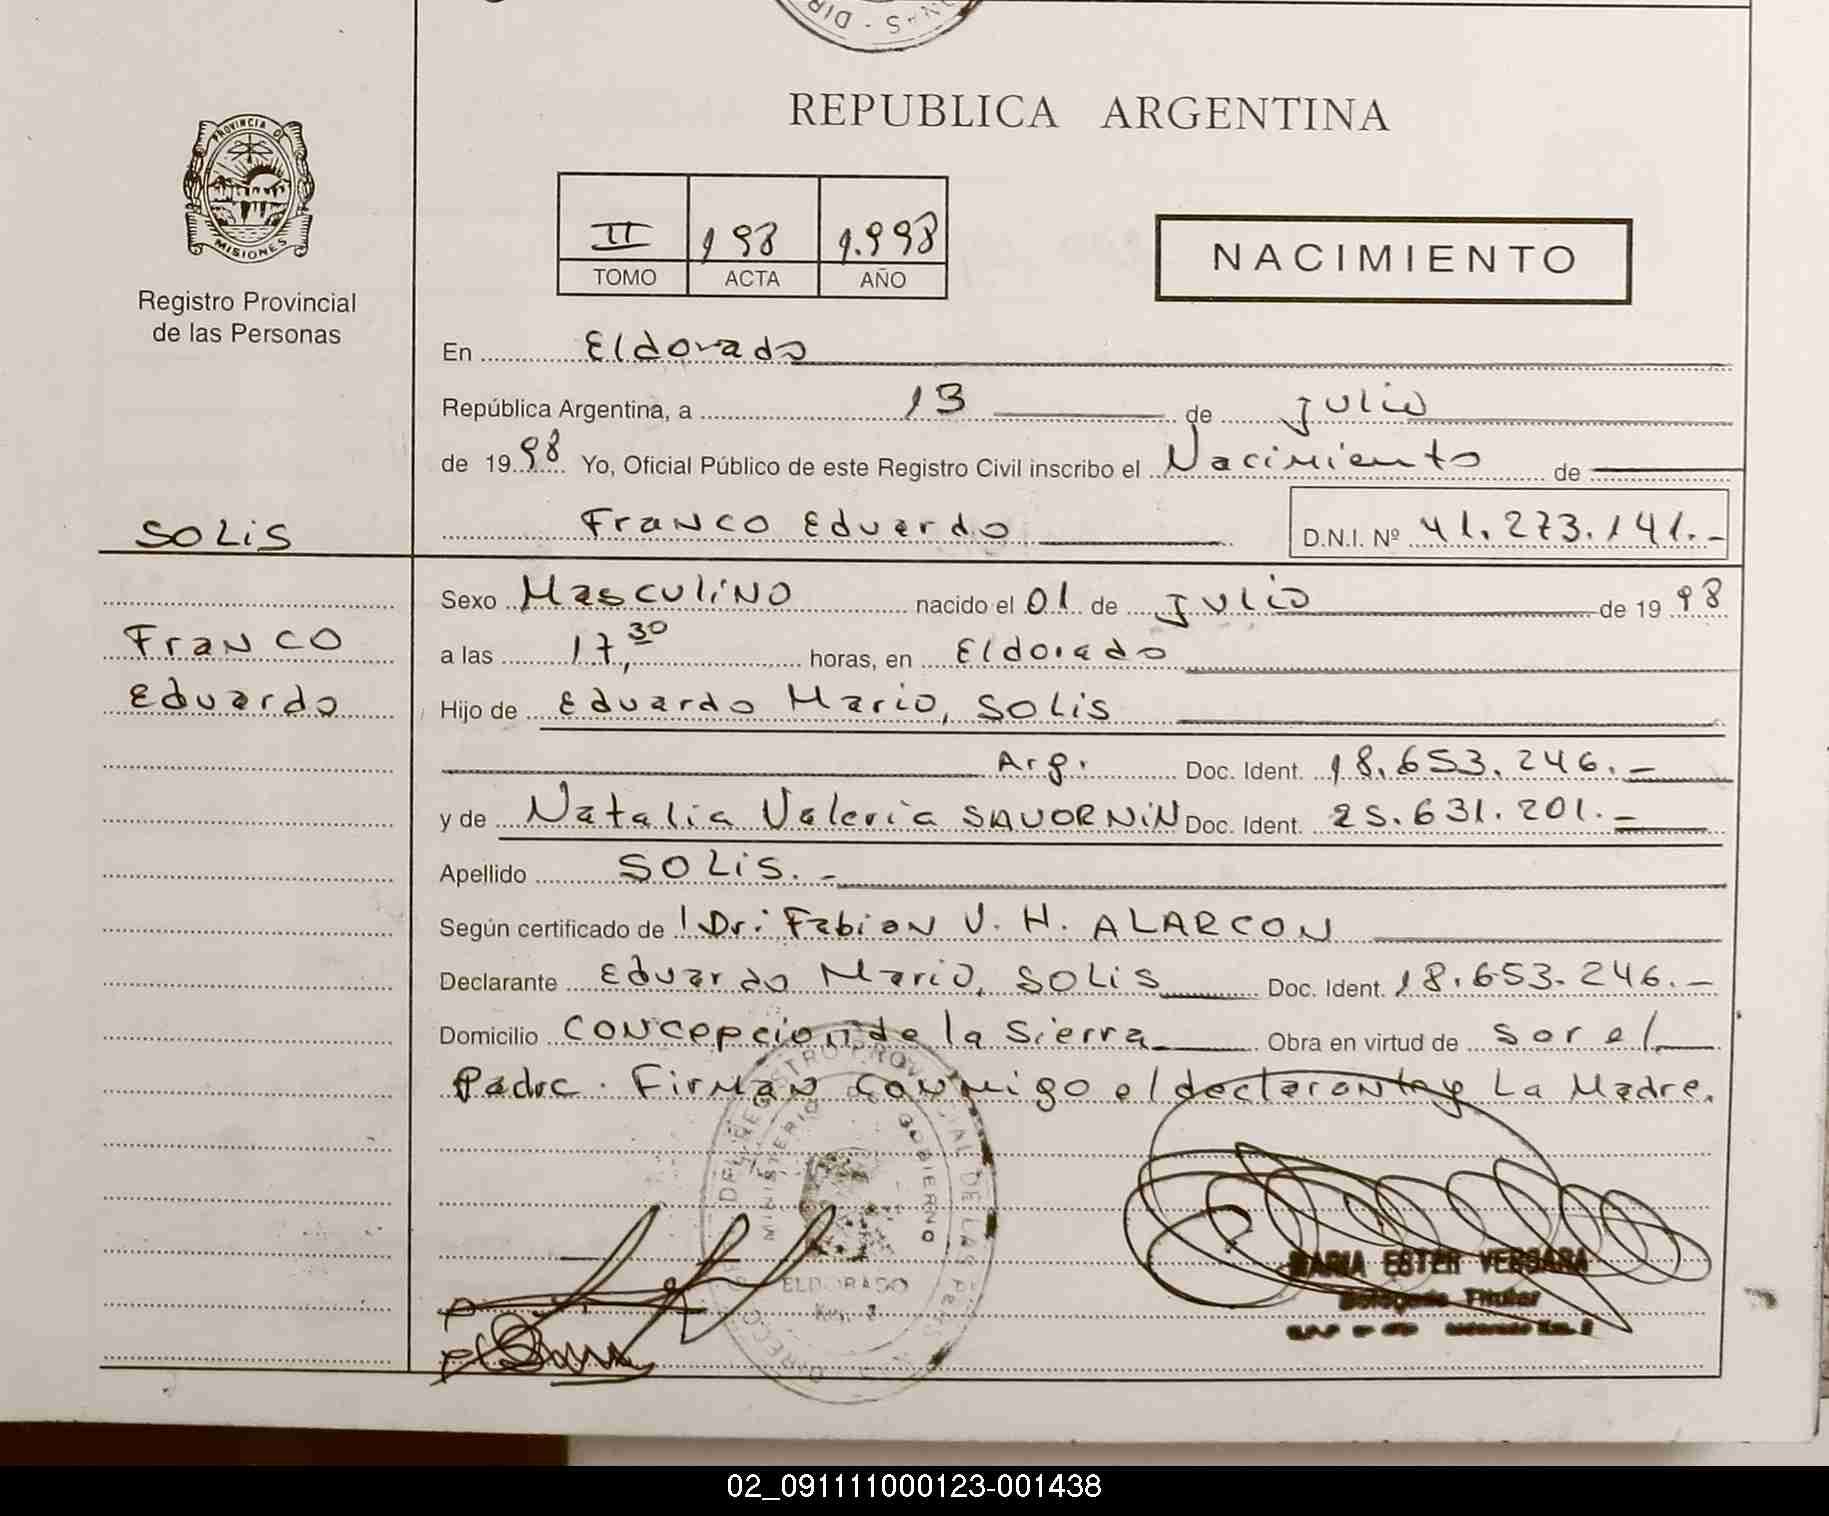 DIR - NAS
REPUBLICA ARGENTINA
PROVINCIA DE
MISIONES
Registro Provincial
de las Personas
II 198 1.998
TOMO ACTA AÑO
NACIMIENTO
En Eldorado
República Argentina, a 13 de Julio
de 1998 Yo, Oficial Público de este Registro Civil inscribo el Nacimiento de
SOLIS
Franco Eduardo D.N.I. Nº 41.273.141.-
Sexo Masculino nacido el 01 de Julio de 1998
Franco
a las 17,30 horas, en Eldorado
Eduardo
Hijo de Eduardo Mario, SOLIS
Arg. Doc. Ident. 18.653.246.-
y de Natalia Valeria SAVORNIN Doc. Ident. 25.631.201.-
Apellido SOLIS.-
Según certificado de Dr: Fabian V. H. ALARCON
Declarante Eduardo Mario, SOLIS Doc. Ident. 18.653.246.-
Domicilio Concepcion de la Sierra Obra en virtud de ser el
Padre. Firman conmigo el declarante y La Madre.
MINISTERIO GOBIERNO
ELDORADO
MARIA ESTER VERGARA
Delegada Titular
02_091111000123-001438